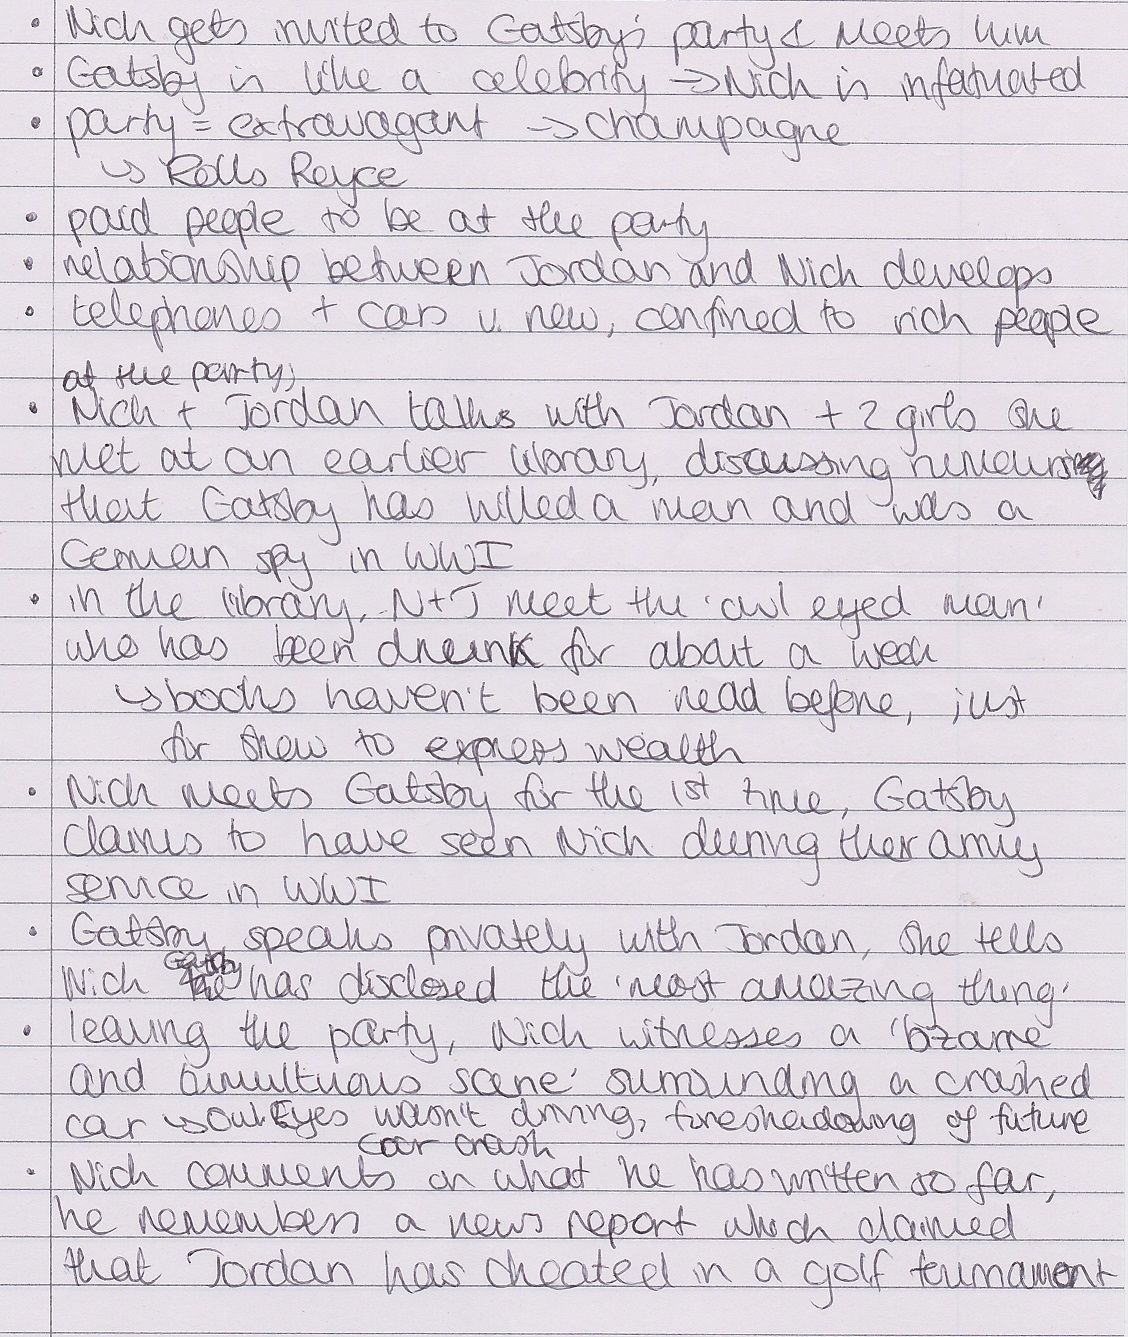 • Nick gets invited to Gatsby's party & meets him
• Gatsby is like a celebrity → Nick is infatuated
• party = extravagant → champagne
↳ Rolls Royce
• paid people to be at the party
• relationship between Jordan and Nick develops
• telephones + cars v. new, confined to rich people
at the party,
• Nick + Jordan talks with Jordan + 2 girls she
met at an earlier library, discussing rumours
that Gatsby has killed a man and was a
German spy in WWI
• in the library, N+J meet the 'owl eyed man'
who has been drunk for about a week
↳ books haven't been read before, just
for show to express wealth
• Nick meets Gatsby for the 1st time, Gatsby
claims to have seen Nick during their army
service in WWI
• Gatsby speaks privately with Jordan, she tells
Nick Gatsby has disclosed the 'most amazing thing'
• leaving the party, Nick witnesses a 'bizarre
and tumultuous scene' surrounding a crashed
car ↳ Owl Eyes wasn't driving, foreshadowing of future
car crash
• Nick comments on what he has written so far,
he remembers a news report which claimed
that Jordan has cheated in a golf tournament